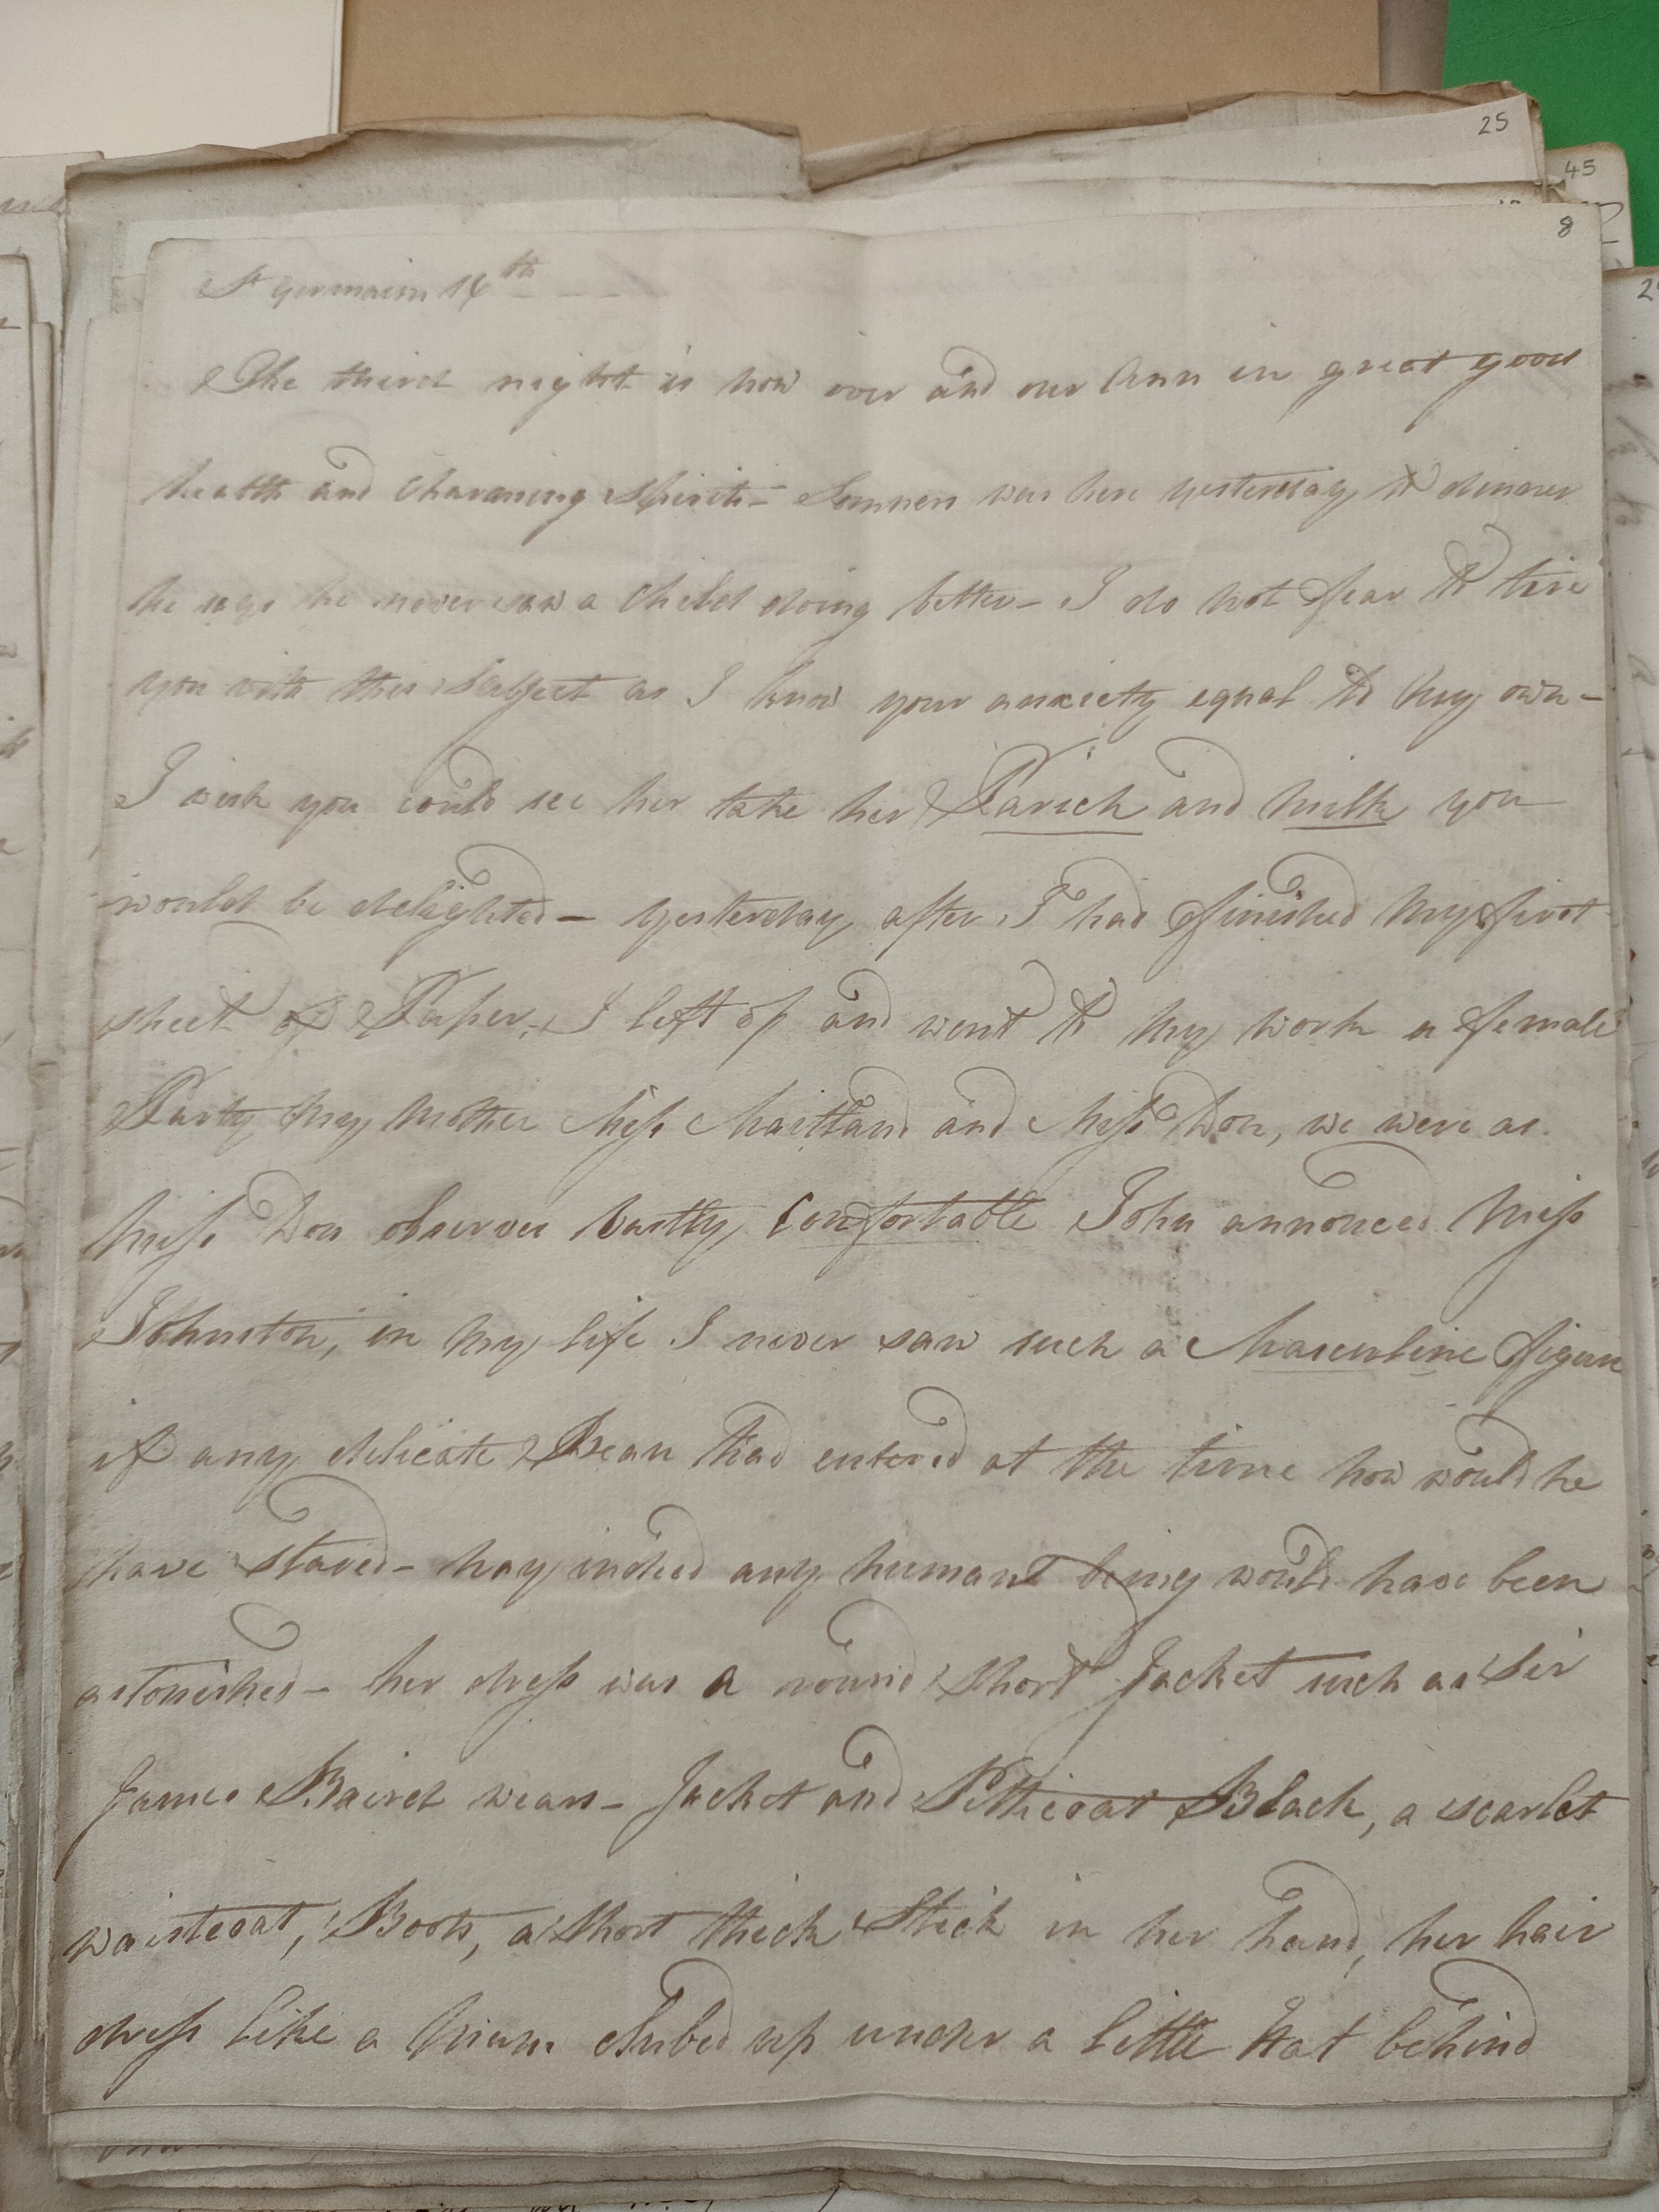 25
45
8
St Germains 14th
The third night is now over and our Ann in great good
health and charming Spirits – Somners was here yesterday to dinner
he says he never saw a Child doing better – I do not fear to tire
you with this Subject as I know your anxiety equal to my own –
I wish you could see her take her Parich and milk you
would be delighted – yesterday after I had finished my first
sheet of Paper, I left of and went to my work a female
Party my mother Miss Maitland and Miss Don, we were as
Miss Don observes vastly Comfortable John annonced Miss
Johnston, in my life I never saw such a Masculine figure
if any delicate Beau had entered at the time how would he
have Stared – nay indeed any human being would have been
astonished – her dress was a round Short Jacket such as Sir
James Baird wears – Jacket and Petticoat Black, a scarlet
waistcoat, Boots, a Short thick Stick in her hand, her hair
dress like a Mans Clubed up under a little Hat behind